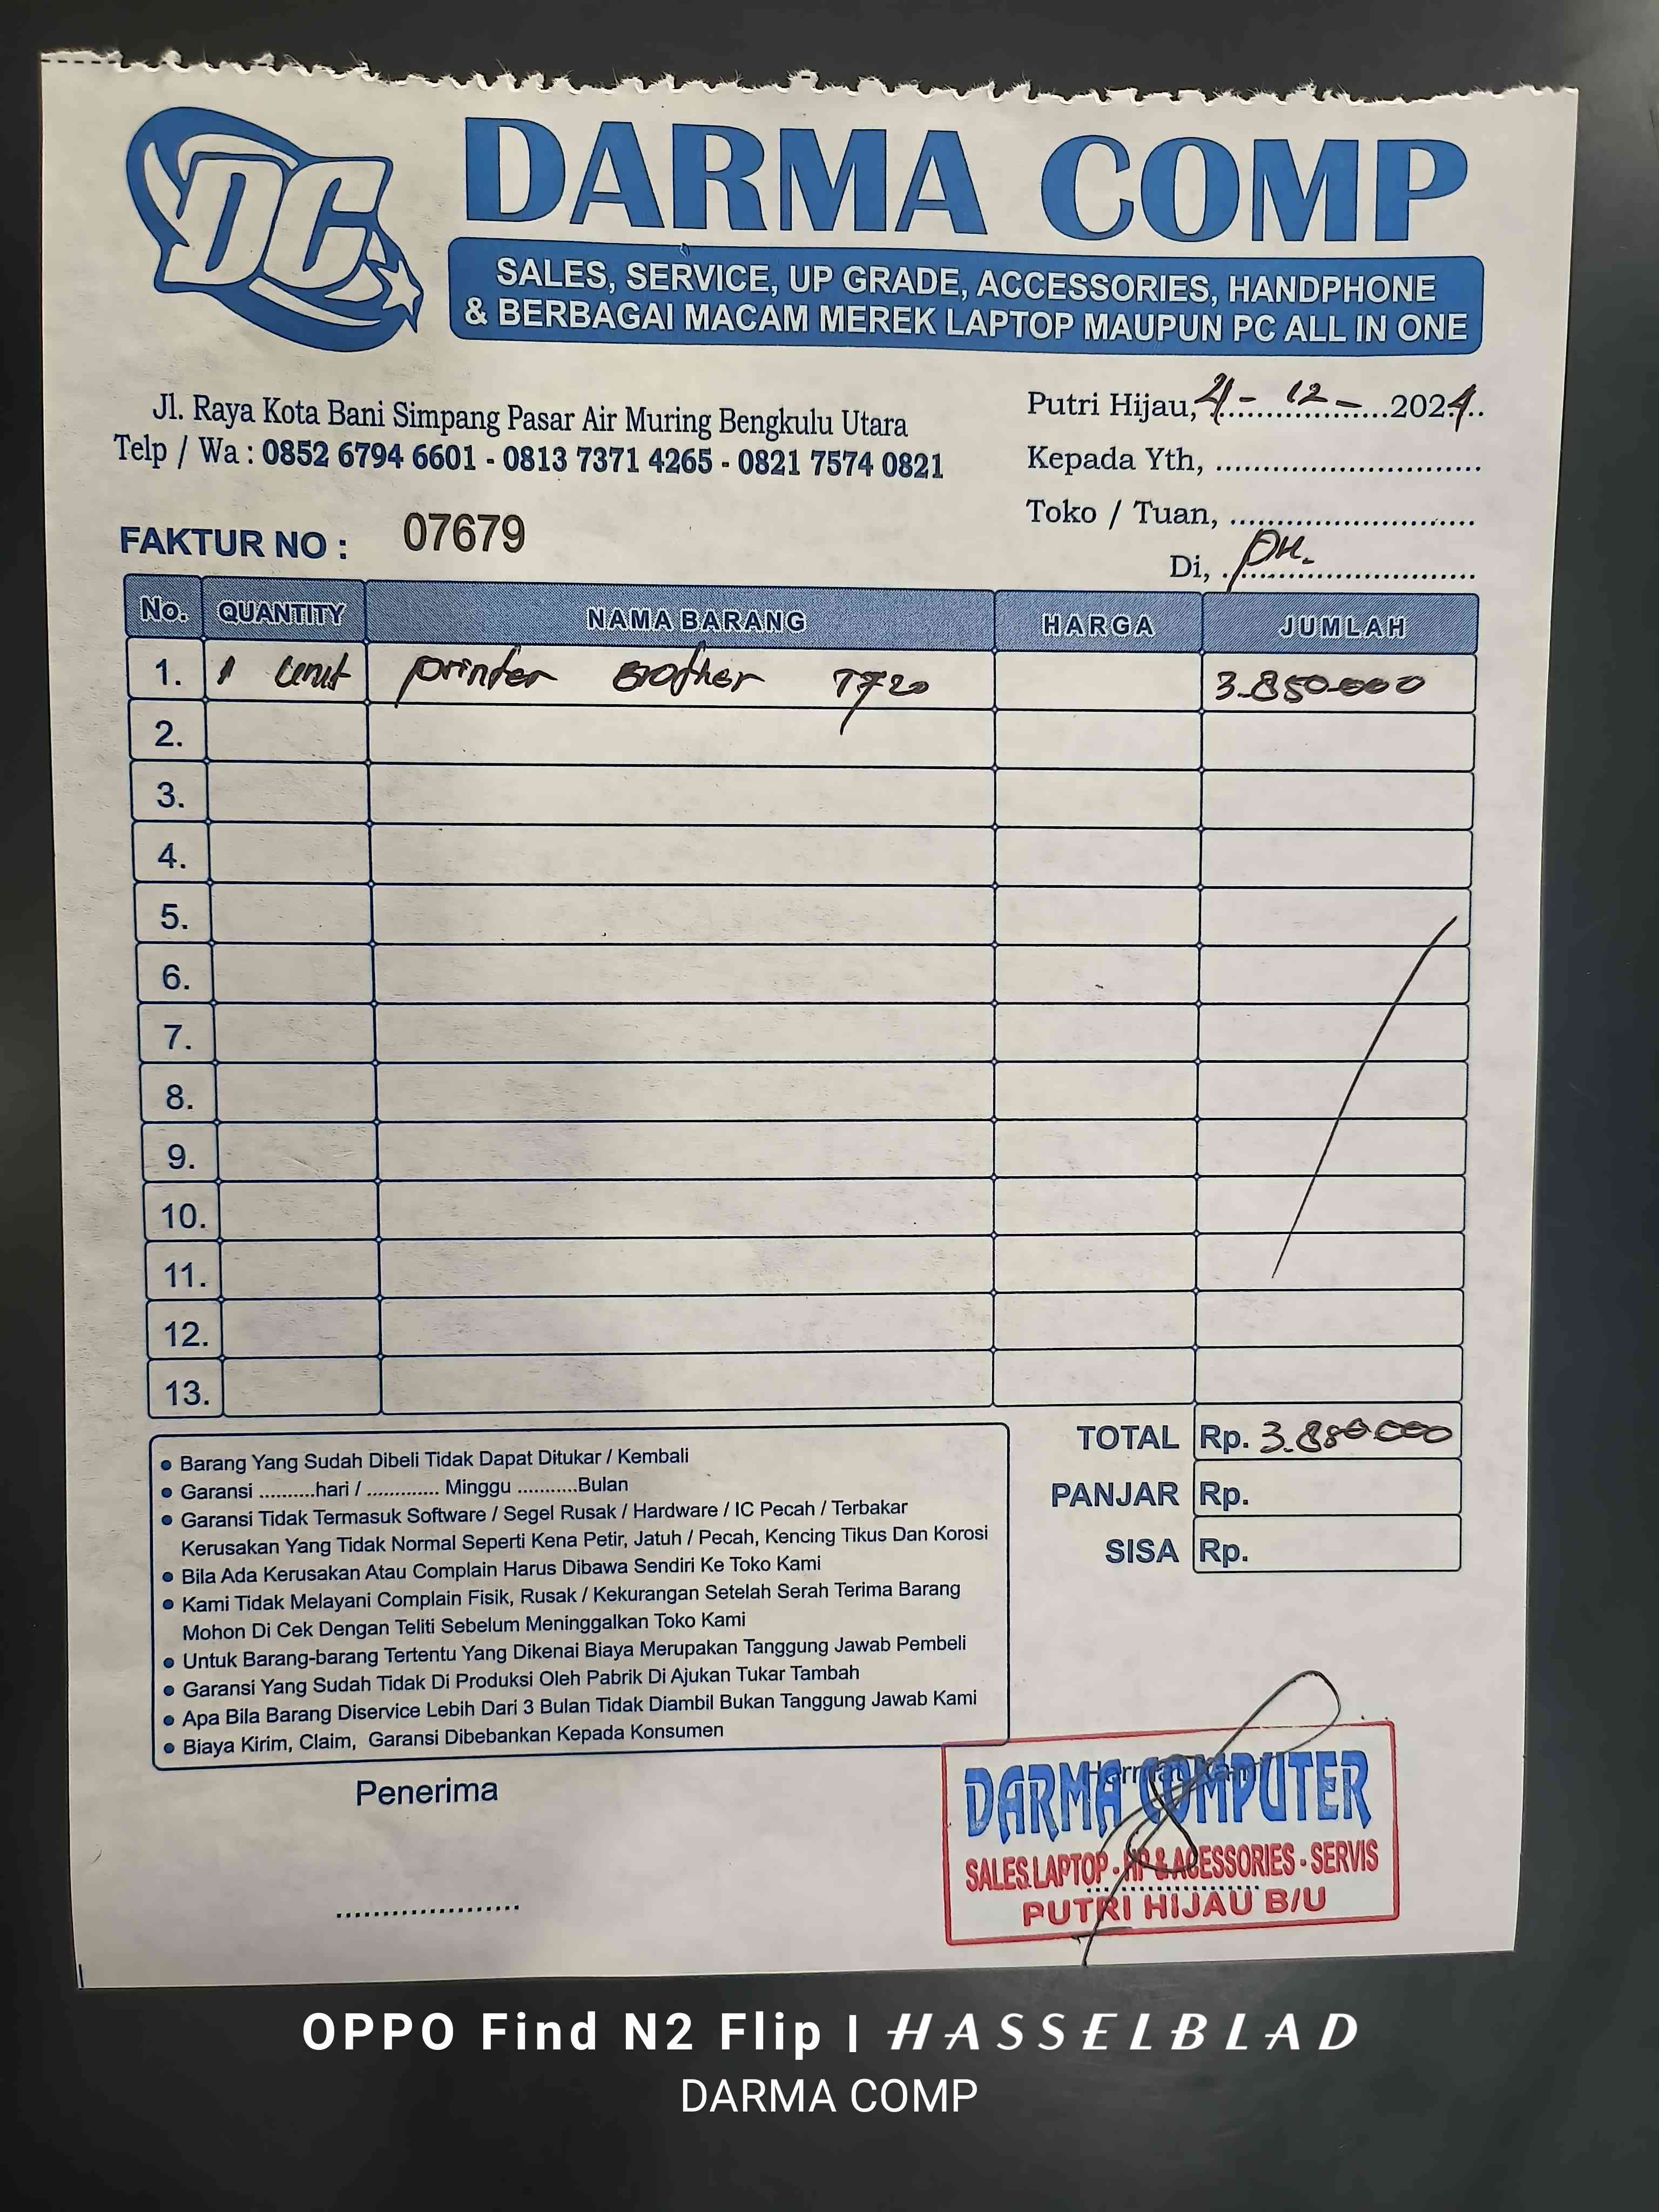 DC
DARMA COMP
SALES, SERVICE, UP GRADE, ACCESSORIES, HANDPHONE
& BERBAGAI MACAM MEREK LAPTOP MAUPUN PC ALL IN ONE
Jl. Raya Kota Bani Simpang Pasar Air Muring Bengkulu Utara
Telp / Wa : 0852 6794 6601 - 0813 7371 4265 - 0821 7574 0821
Putri Hijau, 4 - 12 - 2024
Kepada Yth, ............................
Toko / Tuan, ..........................
Di, PH.
FAKTUR NO : 07679
No. QUANTITY NAMA BARANG HARGA JUMLAH
1. 1 unit printer Brother T720 3.850.000
2.
3.
4.
5.
6.
7.
8.
9.
10.
11.
12.
13.
TOTAL Rp. 3.850.000
PANJAR Rp.
SISA Rp.
• Barang Yang Sudah Dibeli Tidak Dapat Ditukar / Kembali
• Garansi ..........hari / ............. Minggu ...........Bulan
• Garansi Tidak Termasuk Software / Segel Rusak / Hardware / IC Pecah / Terbakar
Kerusakan Yang Tidak Normal Seperti Kena Petir, Jatuh / Pecah, Kencing Tikus Dan Korosi
• Bila Ada Kerusakan Atau Complain Harus Dibawa Sendiri Ke Toko Kami
• Kami Tidak Melayani Complain Fisik, Rusak / Kekurangan Setelah Serah Terima Barang
Mohon Di Cek Dengan Teliti Sebelum Meninggalkan Toko Kami
• Untuk Barang-barang Tertentu Yang Dikenai Biaya Merupakan Tanggung Jawab Pembeli
• Garansi Yang Sudah Tidak Di Produksi Oleh Pabrik Di Ajukan Tukar Tambah
• Apa Bila Barang Diservice Lebih Dari 3 Bulan Tidak Diambil Bukan Tanggung Jawab Kami
• Biaya Kirim, Claim, Garansi Dibebankan Kepada Konsumen
Penerima
....................
DARMA COMPUTER
SALES.LAPTOP - HP & ACESSORIES - SERVIS
PUTRI HIJAU B/U
OPPO Find N2 Flip | HASSELBLAD
DARMA COMP